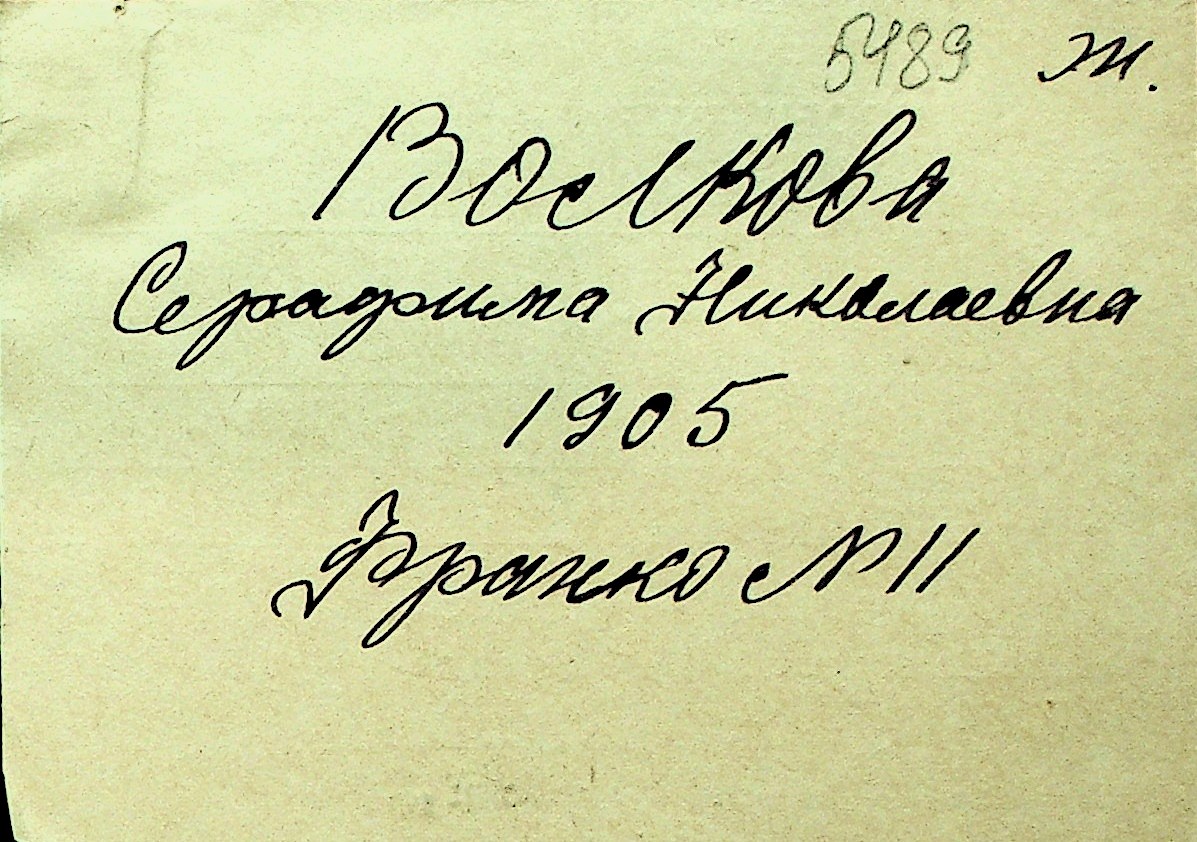 5489 ж.
Волкова
Серафима Николаевна
1905
Франко № 11